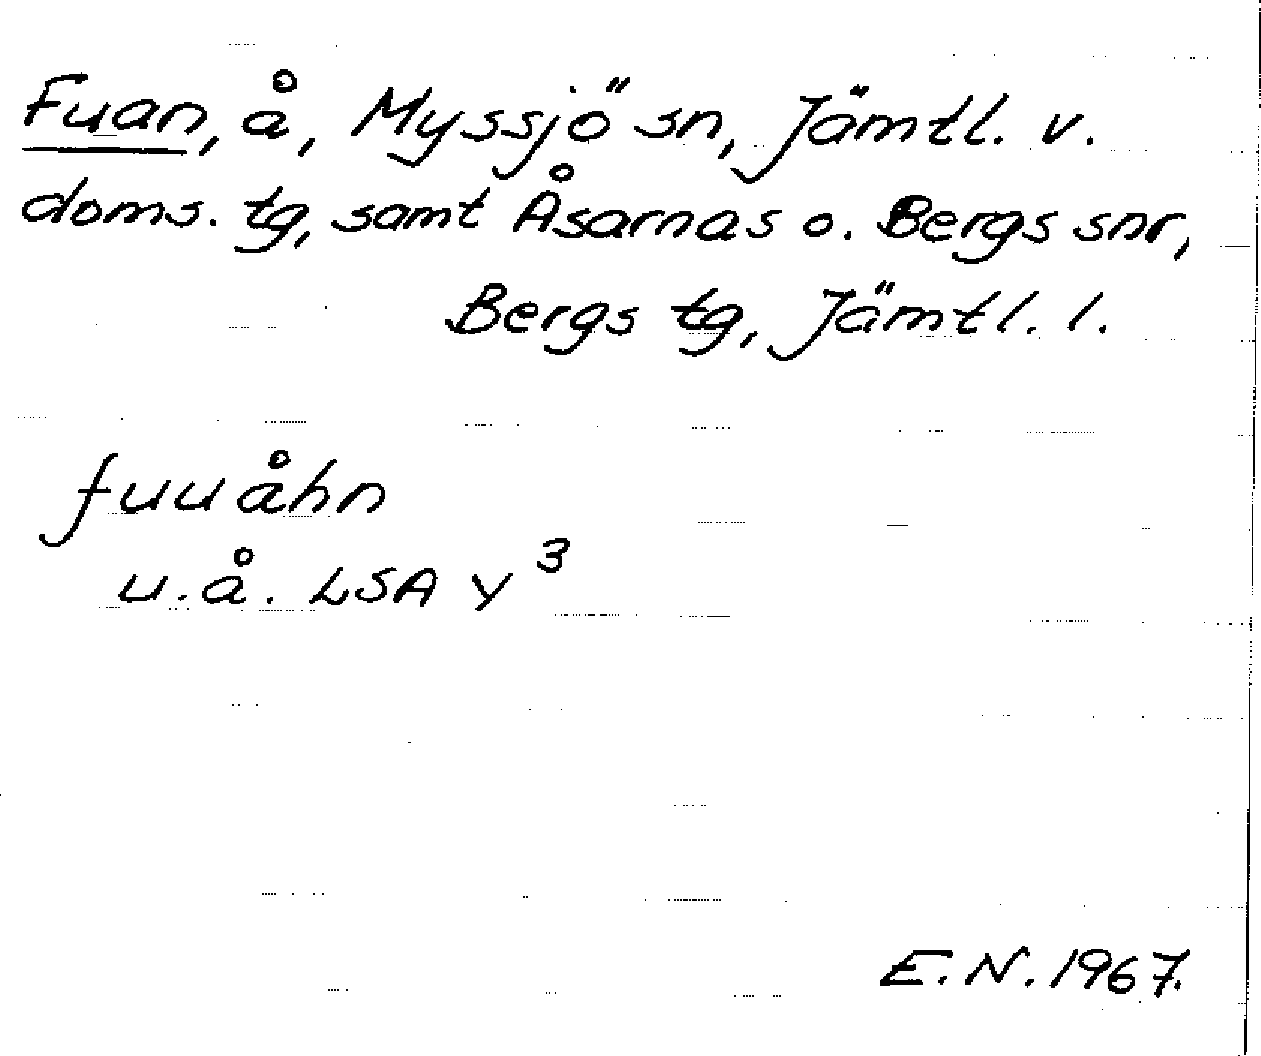 Fuan, å, Myssjö sn, Jämtl. v.
doms. tg, samt Åsarnas o. Bergs snr,
Bergs tg, Jämtl. l.
fuuåhn
u.å. LSA Y³
E.N. 1967.